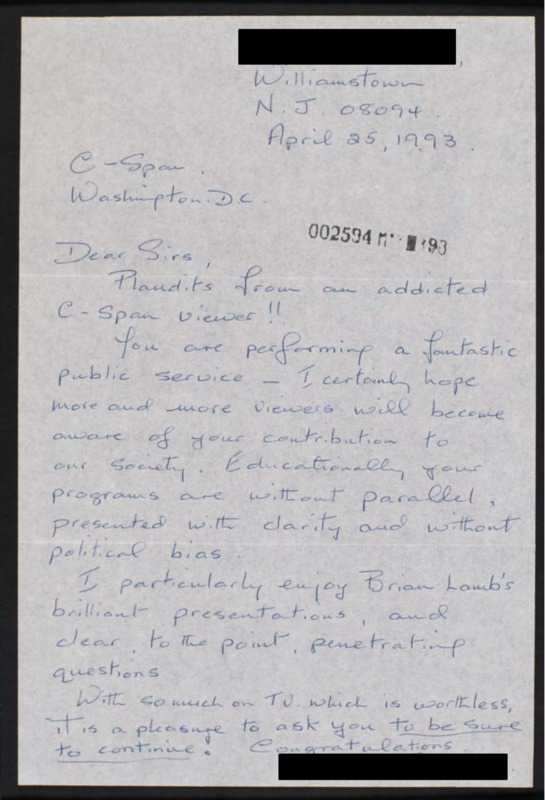 Williamstown
N. J. 08094.
April 25, 1993.
C-Span.
Washington. D.C.
002594
93
Dear Sirs,
Plaudits from an addicted
C-Span viewer!!
You are performing a fantastic
public service – I certainly hope
more and more viewers will become
aware of your contribution to
our society. Educationally your
programs are without parallel,
presented with clarity and without
political bias.
I particularly enjoy Brian Lamb's
brilliant presentations, and
clear, to the point, penetrating
questions
With so much on T.V. which is worthless,
it is a pleasure to ask you to be sure
to continue. Congratulations.